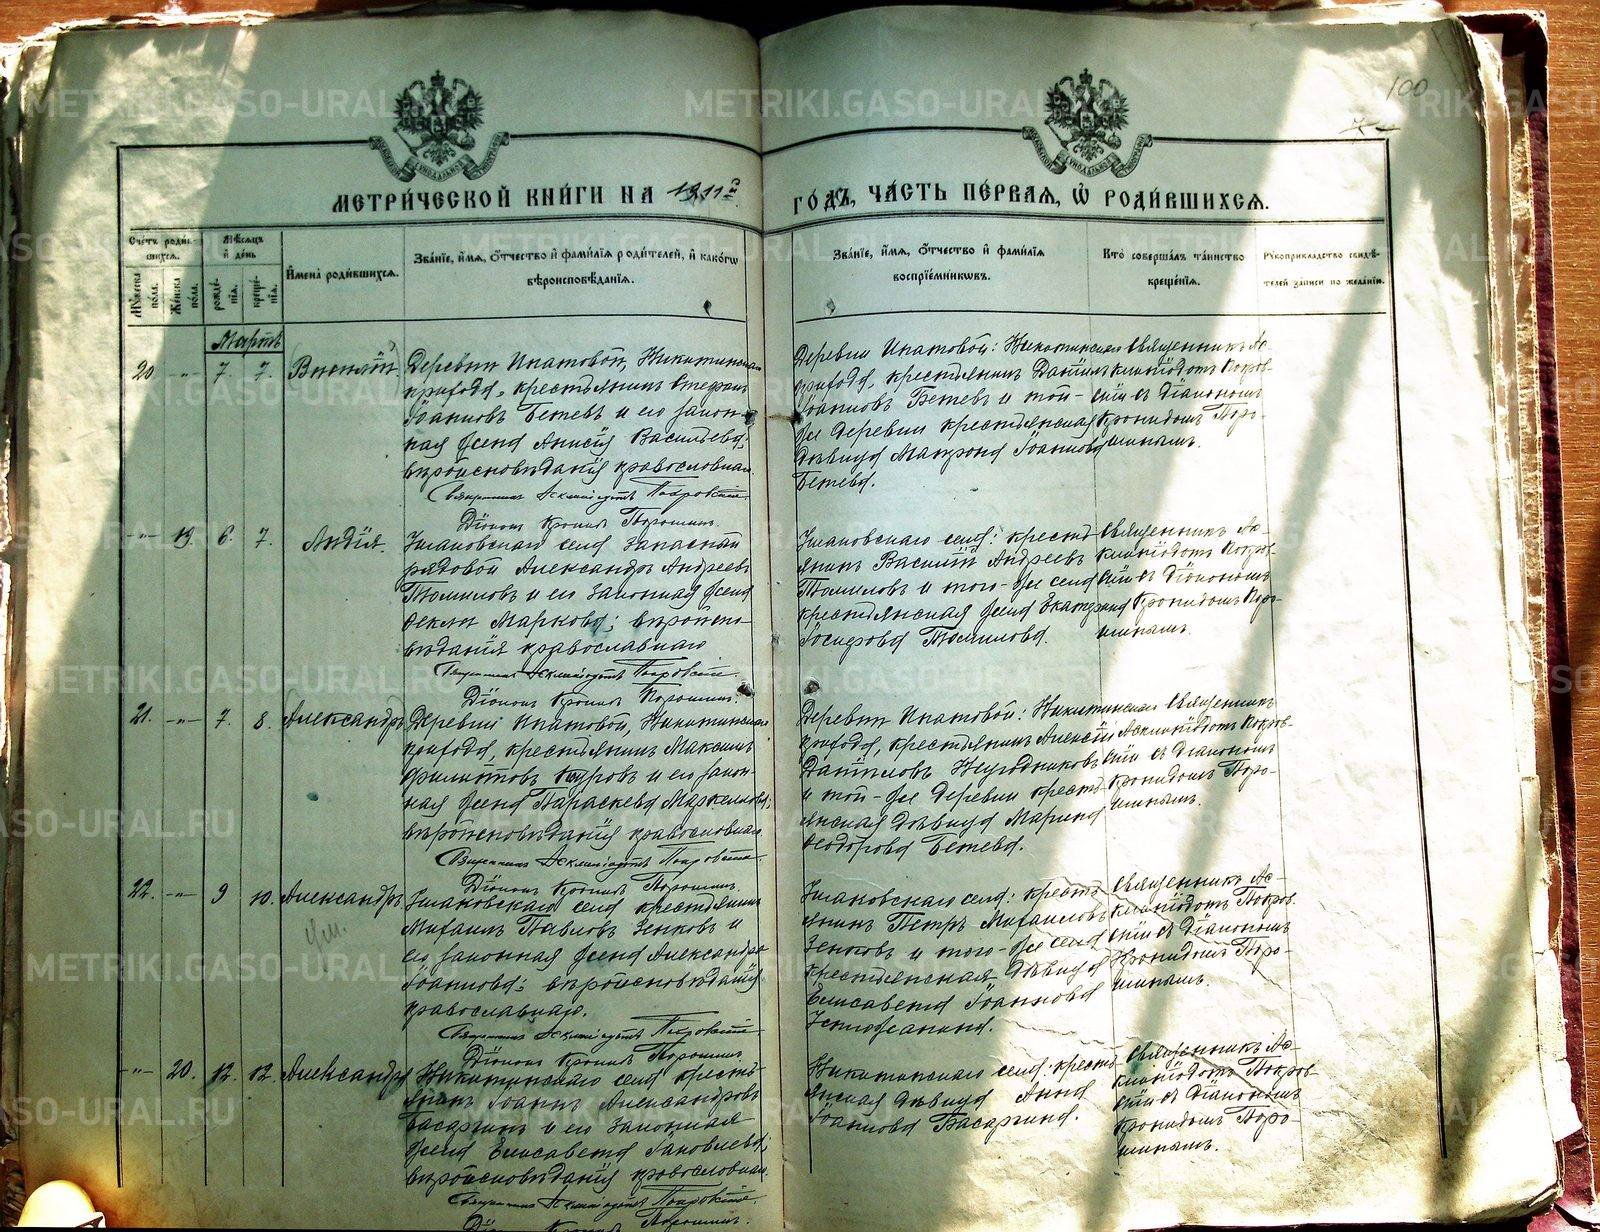 METRIKI.GASO-URAL.RU
100
МЕТРИ́ЧЕСКОЙ КНИ́ГИ НА 1911 го́дъ, ЧА́СТЬ ПЕ́РВАЯ, Ѡ РОДИ́ВШИХСЯ.
Счетъ роди́вшихся.
Му́жеска по́ла.
Же́нска по́ла.
Мѣ́сяцъ и де́нь
рожде́нія.
креще́нія.
И́мена роди́вшихся.
Зва́ніе, и́мя, о́тчество и фами́лія роди́телей, и како́гѡ
вѣроисповѣ́данія.
Зва́ніе, и́мя, о́тчество и фами́лія
воспріе́мникѡвъ.
Кто̀ соверша́лъ та́инство
креще́нія.
Рукоприкла́дство свидѣ́-
телей за́писи по жела́нію.
Мартъ
20 -"- 7 7.
Деревни Ипатовой, Никитинскаго
прихода, крестьянинъ Стефанъ
Іоанновъ Бетевъ и его закон-
ная жена Анисія Васильева;
вѣроисповѣданія православнаго.
Священник Асклипіодотъ Покровскій
Діакон Кронид Порошин.
Деревни Ипатовой: Никитинскаго
прихода, крестьянинъ Даніилъ
Іоанновъ Бетевъ и той-
же деревни крестьянская
дѣвица Матрона Іоаннова
Бетева.
Священникъ Ас-
клипіодотъ Покров-
скій съ Діакономъ
Кронидомъ Поро-
шинымъ.
-"- 19. 6. 7. Лидія.
Ушаковскаго села запасный
рядовой Александръ Андреевъ
Томиловъ и его законная жена
Ѳекла Маркова; вѣроиспо-
вѣданія православнаго
Священник Асклипіодотъ Покровскій
Діакон Кронид Порошин.
Ушаковскаго села: кресть-
янинъ Василій Андреевъ
Томиловъ и того-же села
крестьянская жена Екатерина
Іосифова Томилова.
Священникъ Ас-
клипіодотъ Покров-
скій съ Діакономъ
Кронидомъ Поро-
шинымъ.
21. -"- 7. 8. Александръ
Деревни Ипатовой, Никитинскаго
прихода, крестьянинъ Максимъ
Филипповъ и его закон-
ная жена Параскева Маркелова;
вѣроисповѣданія православнаго.
Священник Асклипіодотъ Покровскій
Діакон Кронид Порошин.
Деревни Ипатовой: Никитинскаго
прихода, крестьянинъ Алексій
Даниловъ Негодниковъ
и той-же деревни кресть-
янская дѣвица Марина
Ѳеодорова Бетева.
Священникъ
Асклипіодотъ Покров-
скій съ Діакономъ
Кронидомъ Поро-
шинымъ.
22. -"- 9 10. Александръ
Ум.
Ушаковскаго села крестьянинъ
Михаилъ Павловъ Зенковъ и
его законная жена Александра
Іоаннова; вѣроисповѣданія
православнаго.
Священник Асклипіодотъ Покровскій
Діакон Кронид Порошин.
Ушаковскаго села: кресть-
янинъ Петръ Михаиловъ
Зенковъ и того-же села
крестьянская дѣвица
Елисавета Іоаннова
Устюжанина.
Священникъ Ас-
клипіодотъ Покров-
скій съ Діакономъ
Кронидомъ Поро-
шинымъ.
-"- 20. 12. 12. Александра
Никитинскаго села кресть-
янинъ Іоаннъ Александровъ
Басаргинъ и его законная
жена Елисавета Іаковлева;
вѣроисповѣданія православнаго.
Священник Асклипіодотъ Покровскій
Діакон Кронид Порошин.
Никитинскаго села: кресть-
янская дѣвица Анна
Іоаннова Басаргина.
Священникъ Ас-
клипіодотъ Покров-
скій съ Діакономъ
Кронидомъ Поро-
шинымъ.